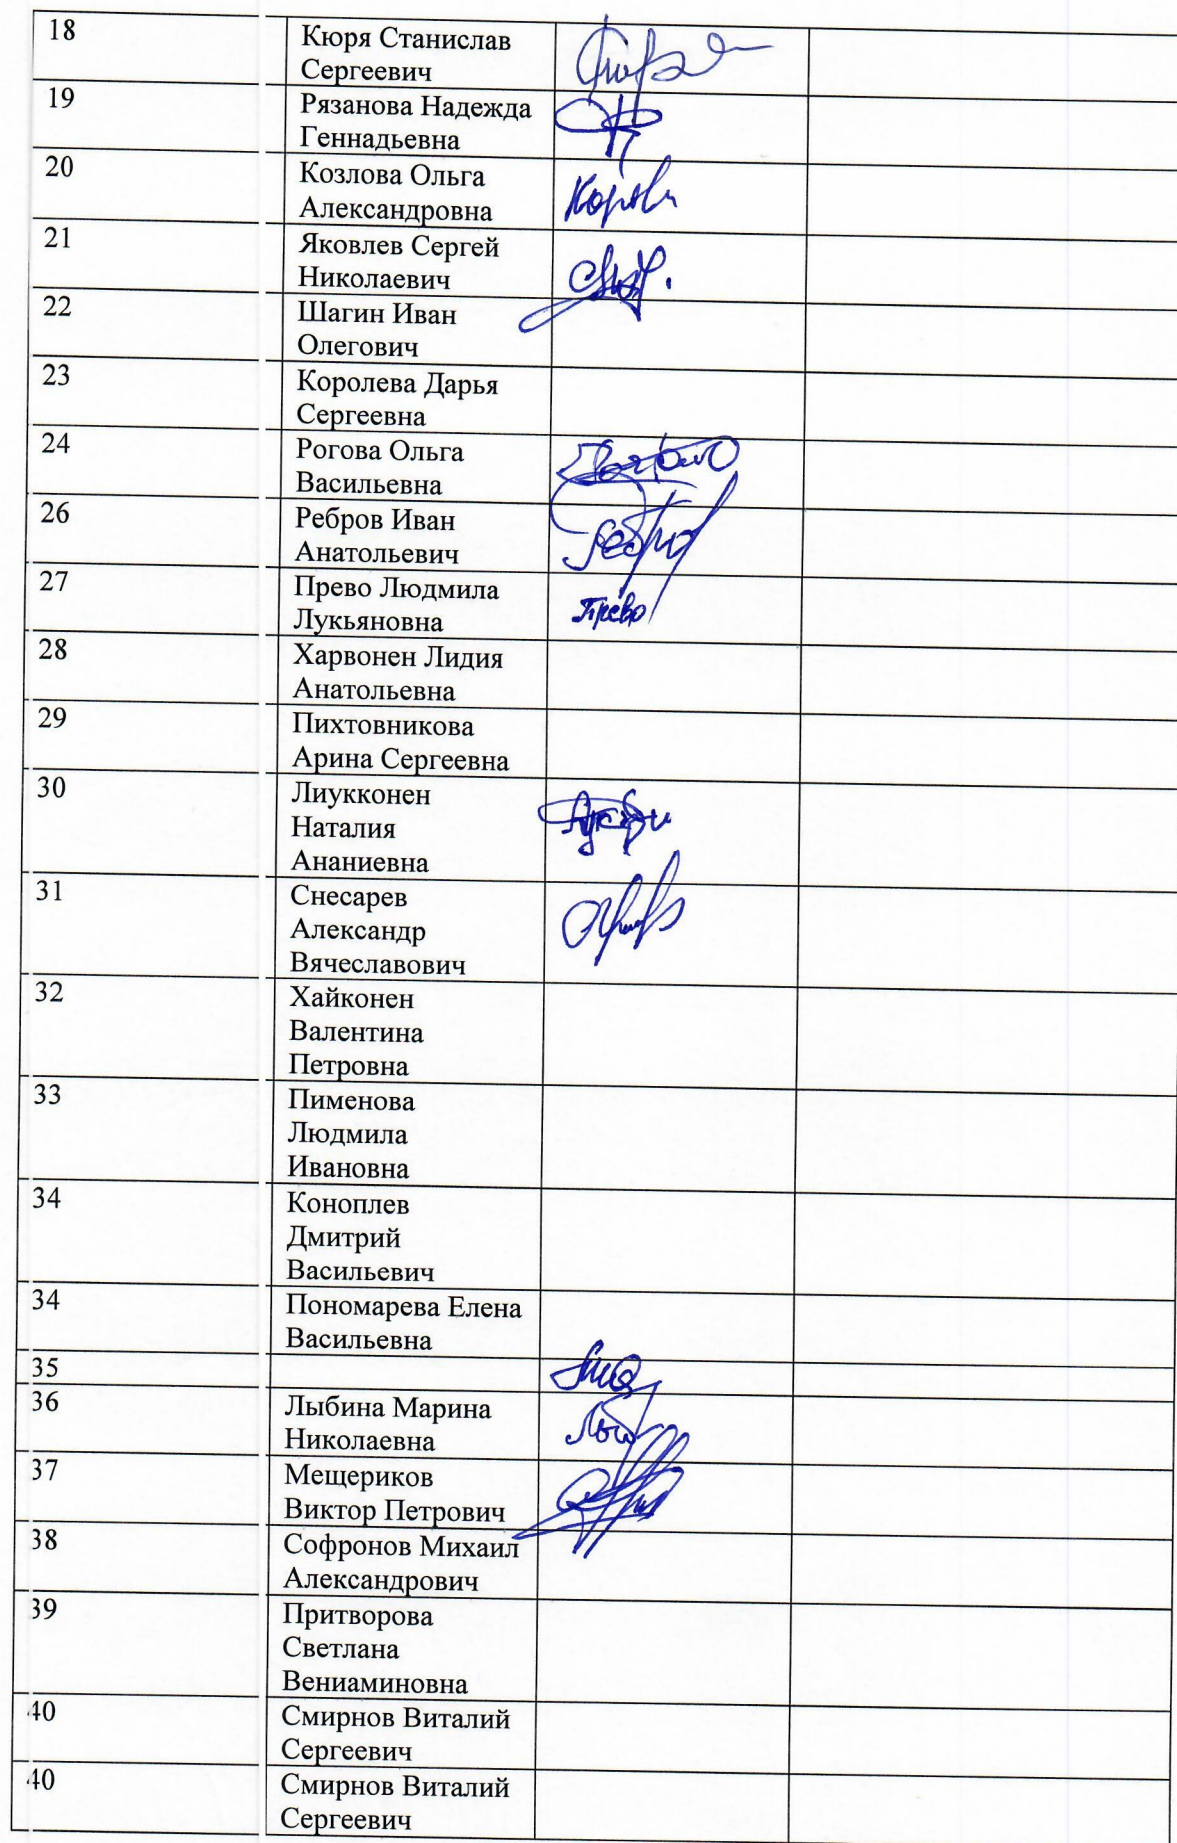 18 Кюря Станислав
Сергеевич
19 Рязанова Надежда
Геннадьевна
20 Козлова Ольга
Александровна
21 Яковлев Сергей
Николаевич
22 Шагин Иван
Олегович
23 Королева Дарья
Сергеевна
24 Рогова Ольга
Васильевна
26 Ребров Иван
Анатольевич
27 Прево Людмила Прево
Лукьяновна
28 Харвонен Лидия
Анатольевна
29 Пихтовникова
Арина Сергеевна
30 Лиукконен
Наталия
Ананиевна
31 Снесарев
Александр
Вячеславович
32 Хайконен
Валентина
Петровна
33 Пименова
Людмила
Ивановна
34 Коноплев
Дмитрий
Васильевич
34 Пономарева Елена
Васильевна
35
36 Лыбина Марина
Николаевна
37 Мещериков
Виктор Петрович
38 Софронов Михаил
Александрович
39 Притворова
Светлана
Вениаминовна
40 Смирнов Виталий
Сергеевич
40 Смирнов Виталий
Сергеевич